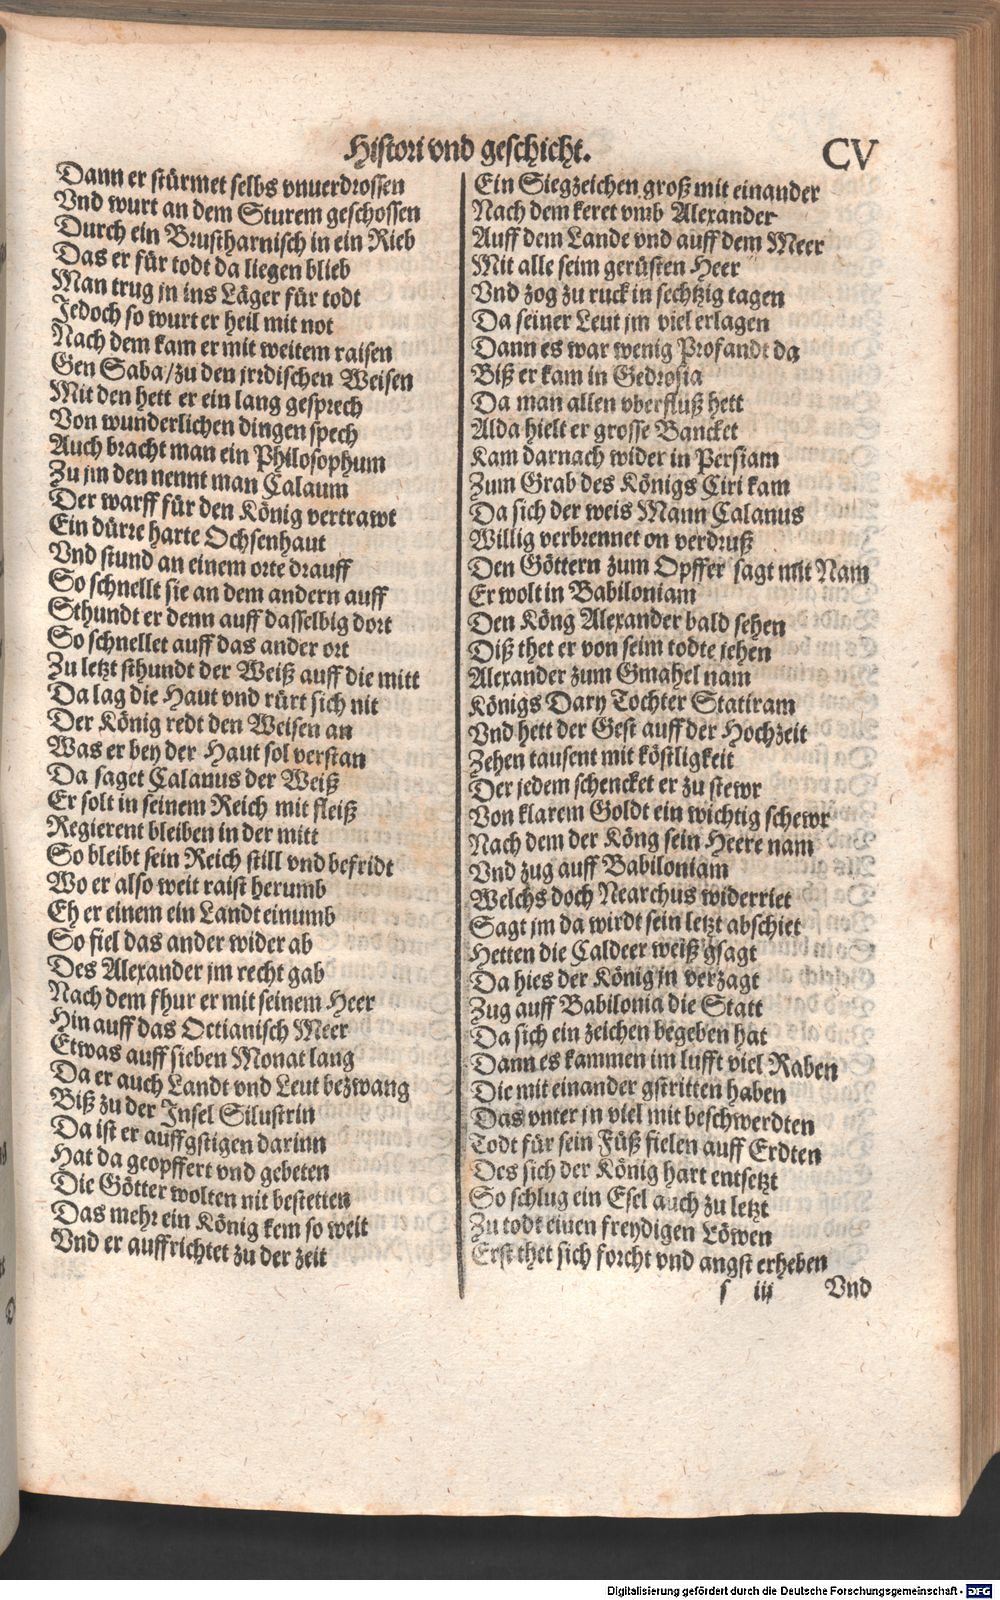 Histori vnd geschicht.
CV
Dann er stürmet selbs vnuerdrossen
Vnd wurt an dem Sturem geschossen
Durch ein Brustharnisch in ein Rieb
Das er für todt da liegen blieb
Man trug jn ins Läger für todt
Jedoch so wurt er heil mit not
Nach dem kam er mit weitem raisen
Gen Saba/zu den jrrdischen Weisen
Mit den hett er ein lang gesprech
Von wunderlichen dingen spech
Auch bracht man ein Philosophum
Zu jm den nennt man Calaum
Der warff für den König vertrawt
Ein dürre harte Ochsenhaut
Vnd stund an einem orte drauff
So schnellt sie an dem andern auff
Sthundt er denn auff dasselbig dort
So schnellet auff das ander ort
Zu letzt sthundt der Weiß auff die mitt
Da lag die Haut vnd rürt sich nit
Der König redt den Weisen an
Was er bey der Haut sol verstan
Da saget Calanus der Weiß
Er solt in seinem Reich mit fleiß
Regierent bleiben in der mitt
So bleibt sein Reich still vnd befridt
Wo er also weit raist herumb
Eh er einem ein Landt einumb
So fiel das ander wider ab
Des Alexander jm recht gab
Nach dem fhur er mit seinem Heer
Hin auff das Octianisch Meer
Etwas auff sieben Monat lang
Da er auch Landt vnd Leut bezwang
Biß zu der Insel Silustrin
Da ist er auffgstigen darinn
Hat da geopffert vnd gebeten
Die Götter wolten nit bestetien
Das mehr ein König kem so weit
Vnd er auffrichtet zu der zeit
Ein Siegzeichen groß mit einander
Nach dem keret vmb Alexander
Auff dem Lande vnd auff dem Meer
Mit alle seim gerüsten Heer
Vnd zog zu ruck in sechtzig tagen
Da seiner Leut jm viel erlagen
Dann es war wenig Profandt da
Biß er kam in Gedrosia
Da man allen vberfluß hett
Alda hielt er grosse Bancket
Kam darnach wider in Persiam
Zum Grab des Königs Ciri kam
Da sich der weis Mann Calanus
Willig verbrennet on verdruß
Den Göttern zum Opffer sagt mit Nam
Er wolt in Babiloniam
Den Köng Alexander bald sehen
Diß thet er von seim todte jehen
Alexander zum Gmahel nam
Königs Dary Tochter Statiram
Vnd hett der Gest auff der Hochzeit
Zehen tausent mit köstligkeit
Der jedem schencket er zu stewr
Von klarem Goldt ein wichtig schewr
Nach dem der Köng sein Heere nam
Vnd zug auff Babiloniam
Welchs doch Nearchus widerriet
Sagt jm da wirdt sein letzt abschiet
Hetten die Caldeer weiß gsagt
Da hies der König jn verzagt
Zug auff Babilonia die Statt
Da sich ein zeichen begeben hat
Dann es kammen im lufft viel Raben
Die mit einander gstritten haben
Das vnter jn viel mit beschwerdten
Todt für sein Füß fielen auff Erdten
Des sich der König hart entsetzt
So schlug ein Esel auch zu letzt
Zu todt einen freydigen Löwen
Erst thet sich forcht vnd angst erheben
s iii Vnd
Digitalisierung gefördert durch die Deutsche Forschungsgemeinschaft - DFG